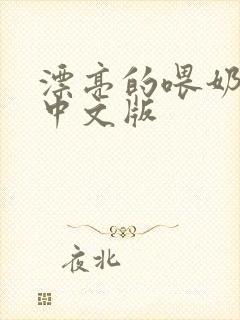 漂亮的喂奶
中文版
夜北